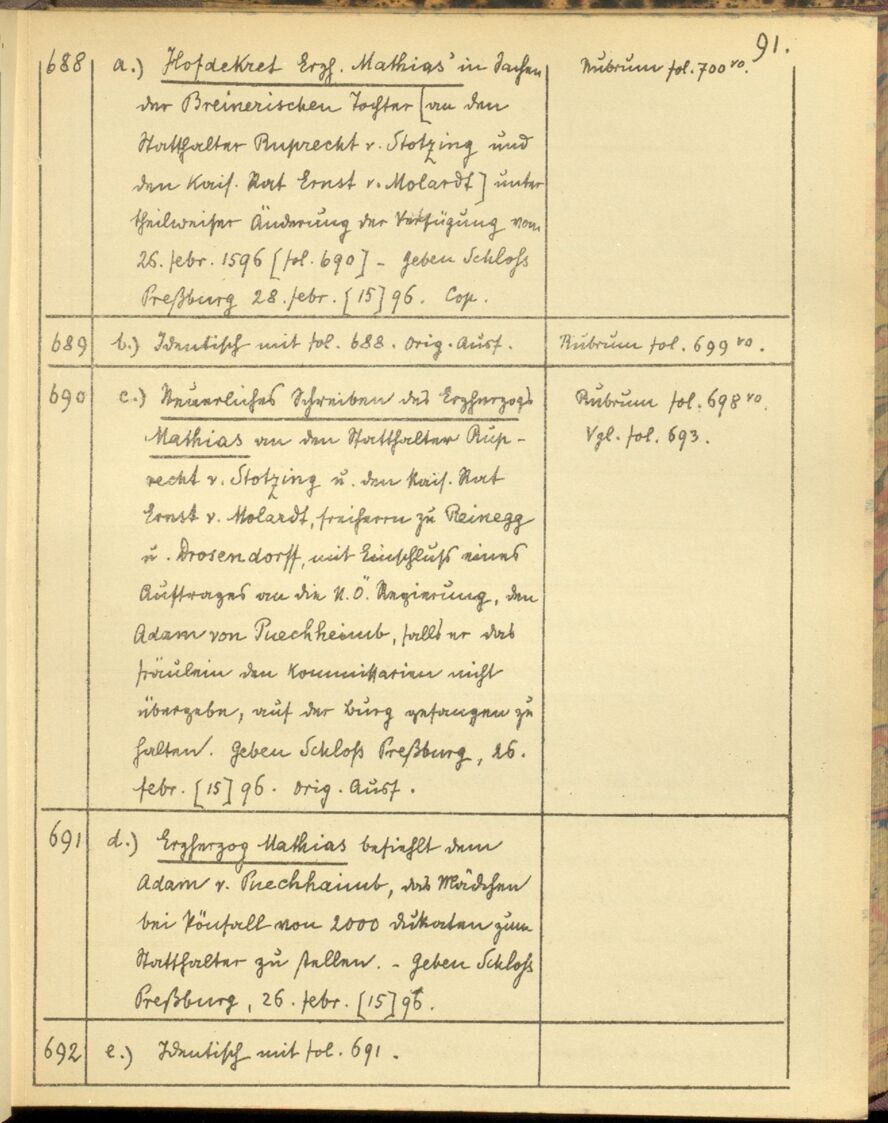 91.
688 a.) Hofdekret Erzh. Mathias' in Sachen Rubrum fol. 700 vo.
der Breinerischen Tochter [an den
Statthalter Ruprecht v. Stotzing und
den Kais. Rat Ernst v. Molardt] unter
theilweiser Änderung der Verfügung vom
26. Febr. 1596 [fol. 690] - Geben Schloss
Preßburg 28. Febr. [15]96. Cop.
689 b.) Identisch mit fol. 688. Orig. Ausf. Rubrum fol. 699 vo.
690 c.) Neuerliches Schreiben des Erzherzogs Rubrum fol. 698 vo.
Mathias an den Statthalter Rup- Vgl. fol. 693.
recht v. Stotzing u. den Kais. Rat
Ernst v. Molardt, Freiherrn zu Reinegg
u. Drosendorff, mit Einschluss eines
Auftrages an die N.Ö. Regierung, den
Adam von Puechheimb, falls er das
Fräulein den Kommissarien nicht
übergebe, auf der Burg gefangen zu
halten. Geben Schloß Preßburg, 26.
Febr. [15]96. Orig. Ausf.
691 d.) Erzherzog Mathias befiehlt dem
Adam v. Puechhaimb, das Mädchen
bei Pönfall von 2000 Dukaten zum
Statthalter zu stellen. - Geben Schloß
Preßburg, 26. Febr. [15]96.
692 e.) Identisch mit fol. 691.